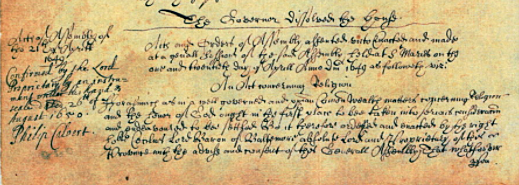 The Governor dissolved the house
Acts of Assembly of
the 21th Aprill
1649
Confirmed by the Lord
Proprietary by an instru-
ment under his hand &
seale the 26th of
August 1650.
Philip Calvert.
Acts and Orders of Assembly assented unto Enacted and made
at a genall Sessions of the said Assembly held at St Maries on the
one and twentieth day of Aprill Anno Dm 1649 as followeth viz:
An Act concerning Religion
fforasmuch as in a well governed and Xpian Comon Wealth matters concerning Religion
and the honor of God ought in the first place to bee taken into serious consideracon
and endeavoured to bee settled Be it therefore ordered and enacted by the right
hoble Cecilius Lord Baron of Baltemore absolute Lord and Proprietary of this
Province with the advise and consent of this Generall Assembly That whatsoever